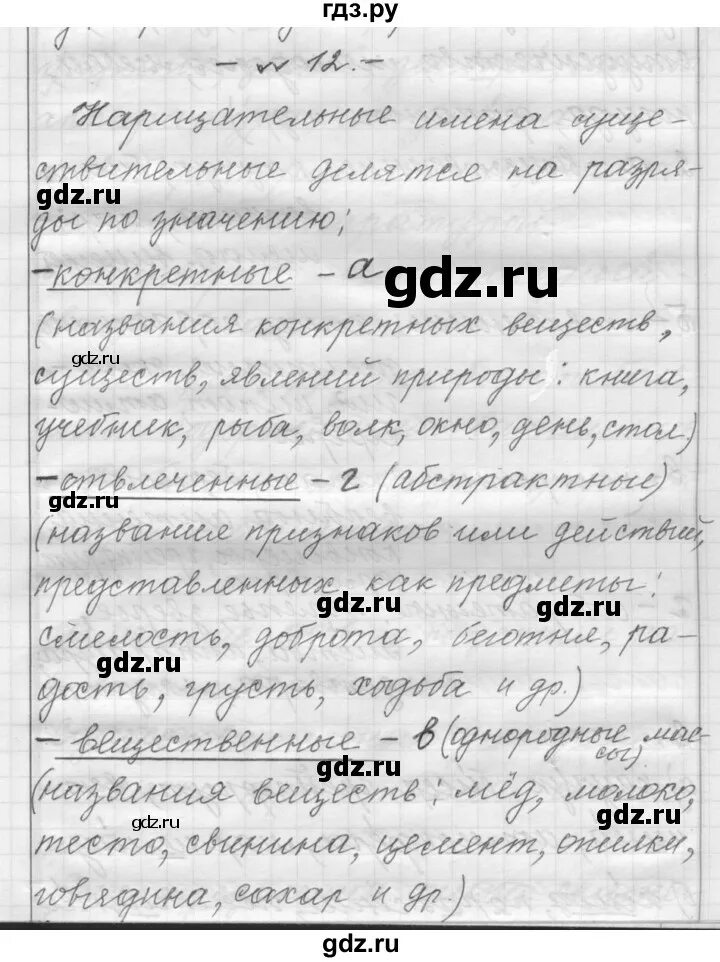 гдз.ру
- № 12. -
Нарицательные имена суще-
ствительные делятся на разря-
gdz.ru
ды по значению:
- конкретные - а
gdz.ru
(названия конкретных веществ,
gdz.ru
существ, явлений природы: книга,
учебник, рыба, волк, окно, день, стол)
- отвлеченные - г (абстрактные)
gdz.ru
(названия признаков или действий,
представленных как предметы:
gdz.ru
gdz.ru
смелость, доброта, беготня, ра-
gdz.ru
дость, грусть, ходьба и др.)
- вещественные - в (однородные мас-
сы)
gdz.ru
(названия веществ: мёд, молоко,
gdz.ru
gdz.ru
тесто, свинина, цемент, опилки,
говядина, сахар и др.)
gdz.ru
gdz.ru